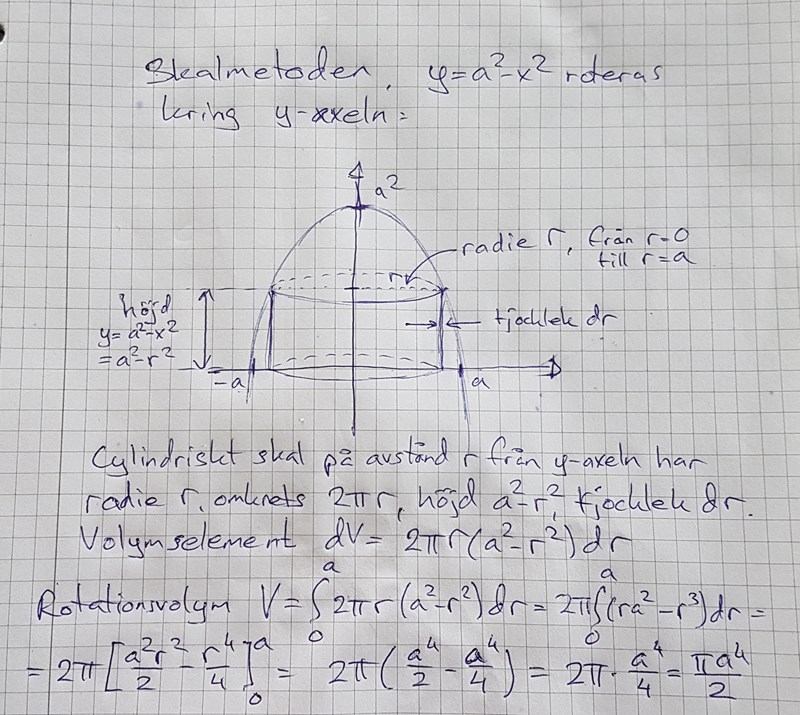 Skalmetoden, y=a²-x² roteras
kring y-axeln:
a²
radie r, från r=0
till r=a
r
höjd
y=a²-x²
=a²-r²
tjocklek dr
-a
a
Cylindriskt skal på avstånd r från y-axeln har
radie r, omkrets 2πr, höjd a²-r², tjocklek dr.
Volymselement dV= 2πr(a²-r²)dr
Rotationsvolym V=∫₀ᵃ2πr(a²-r²)dr=2π∫₀ᵃ(ra²-r³)dr=
=2π[a²r²/2-r⁴/4]₀ᵃ= 2π(a⁴/2-a⁴/4)=2π·a⁴/4=πa⁴/2